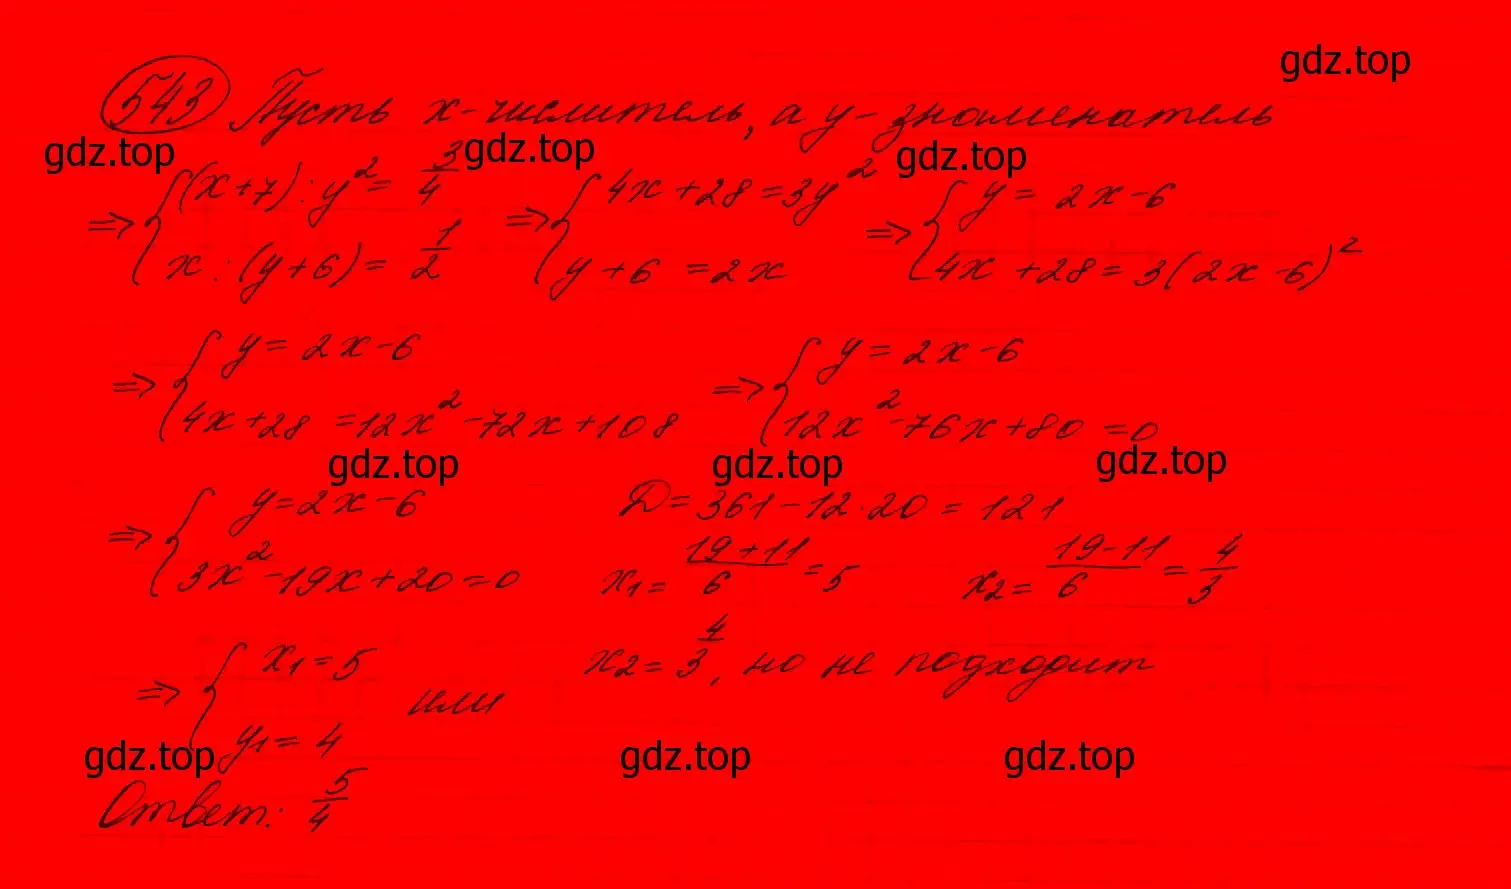 gdz.top
543 Пусть x-числитель, а y-знаменатель
gdz.top gdz.top gdz.top
=> { (x+7) : y² = 3/4 => { 4x+28=3y² => { y = 2x-6
x : (y+6) = 1/2 y+6 = 2x 4x+28 = 3(2x-6)²
=> { y = 2x-6 => { y = 2x-6
4x+28 = 12x²-72x+108 12x²-76x+80 = 0
gdz.top gdz.top gdz.top
=> { y=2x-6 D=361-12·20 = 121
3x²-19x+20=0 x1 = (19+11)/6 = 5 x2 = (19-11)/6 = 4/3
=> { x1=5 или x2 = 4/3, но не подходит
y1 = 4
gdz.top gdz.top gdz.top
Ответ: 5/4